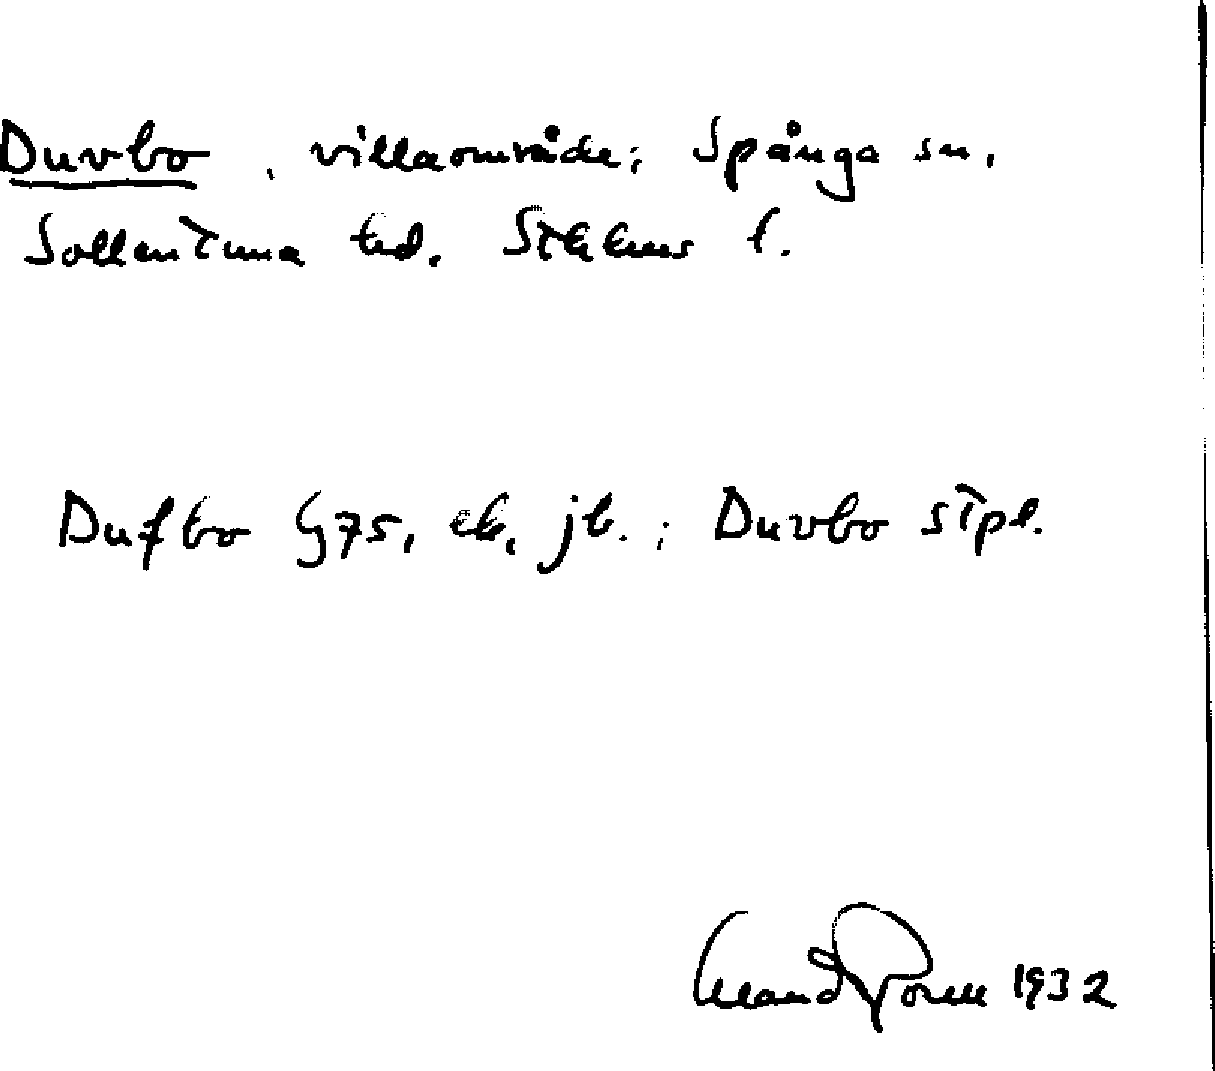 Duvbo, villaområde; Spånga sn,
Sollentuna hd. Sthlms l.
Dufbo G75, eb, jb.; Duvbo stpl.
1932